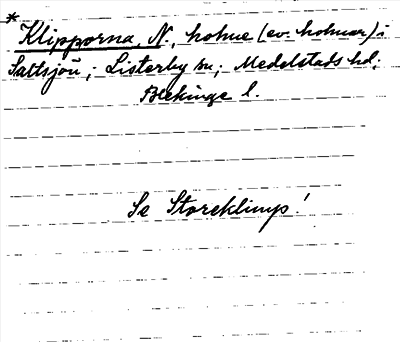 * Klipporna, N., holme (ev. holmar) i
Saltsjön, Listerby sn, Medelstads hd,
Blekinge l.
Se Storeklimp!